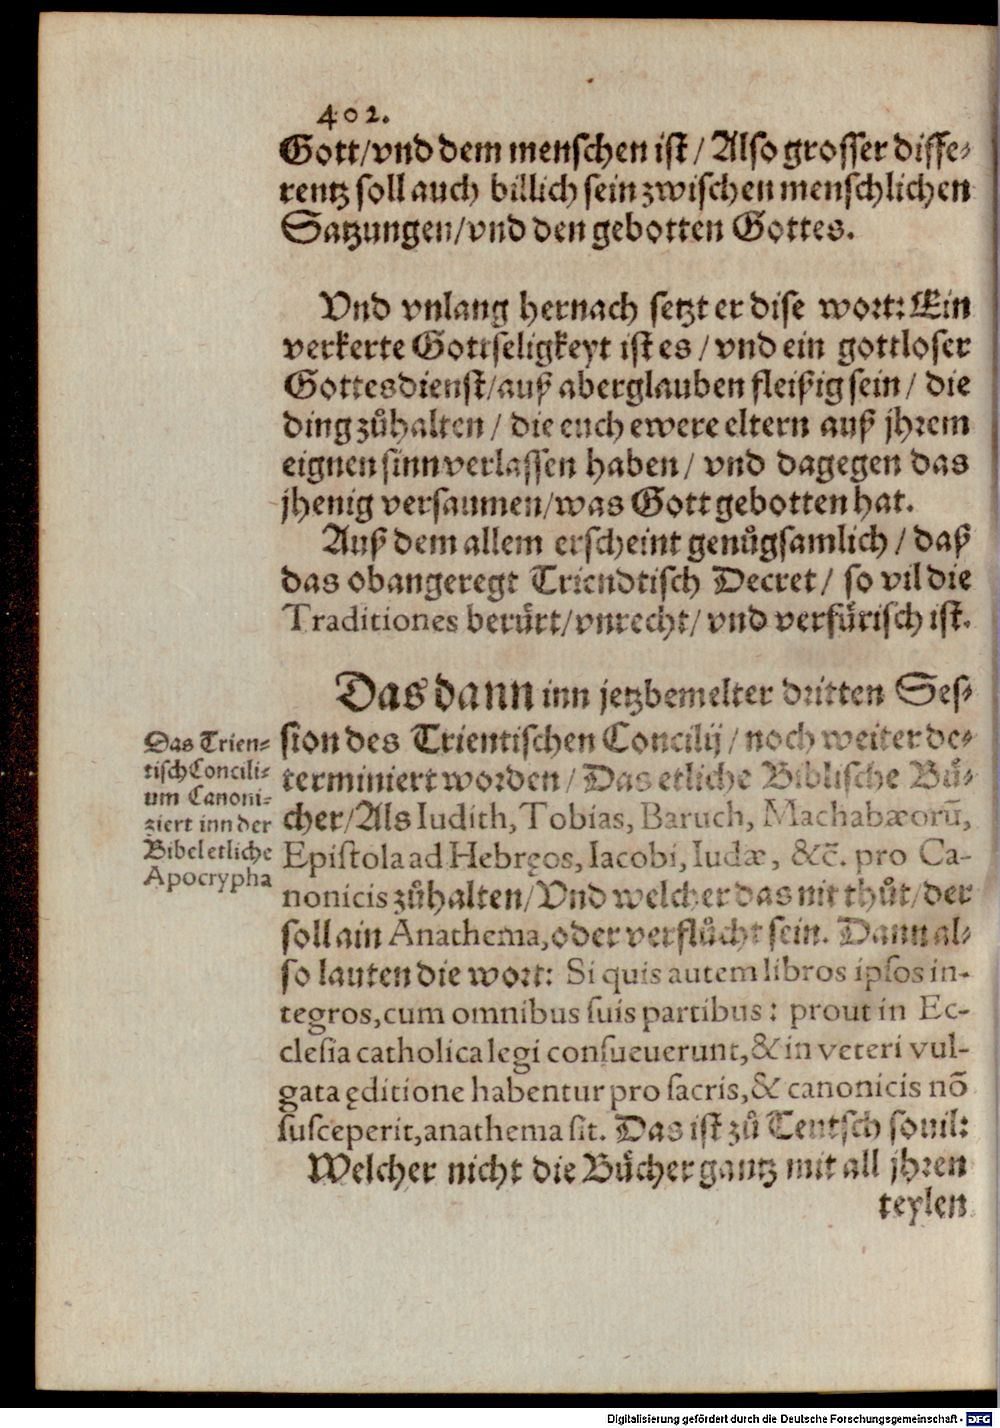 402.
Gott/vnd dem menschen ist/ Also grosser diffe-
rentz soll auch billich sein zwischen menschlichen
Satzungen/vnd den gebotten Gottes.
Vnd vnlang hernach setzt er dise wort: Ein
verkerte Gottseligkeyt ist es/ vnd ein gottloser
Gottesdienst/auß aberglauben fleißig sein/ die
ding zůhalten/ die euch ewere eltern auß jhrem
eignen sinn verlassen haben/ vnd dagegen das
jhenig versaumen/was Gott gebotten hat.
Auß dem allem erscheint genůgsamlich/ daß
das obangeregt Triendtisch Decret/ so vil die
Traditiones berůrt/vnrecht/ vnd verfůrisch ist.
Das dann inn jetzbemelter dritten Ses-
sion des Trientischen Concilij/ noch weiter de-
terminiert worden/ Das etliche Biblische Bů-
cher/Als Iudith, Tobias, Baruch, Machabæorũ,
Epistola ad Hebręos, Iacobi, Iudæ, &c̃. pro Ca-
nonicis zůhalten/Vnd welcher das nit thůt/der
soll ain Anathema, oder verflůcht sein. Dann al-
so lauten die wort: Si quis autem libros ipsos in-
tegros, cum omnibus suis partibus: prout in Ec-
clesia catholica legi consueuerunt, & in veteri vul-
gata ęditione habentur pro sacris, & canonicis nõ
susceperit, anathema sit. Das ist zů Teutsch souil:
Welcher nicht die Bůcher gantz mit all jhren
teylen
Das Trien-
tisch Concili-
um Canoni-
ziert inn der
Bibel etliche
Apocrypha
Digitalisierung gefördert durch die Deutsche Forschungsgemeinschaft - DFG